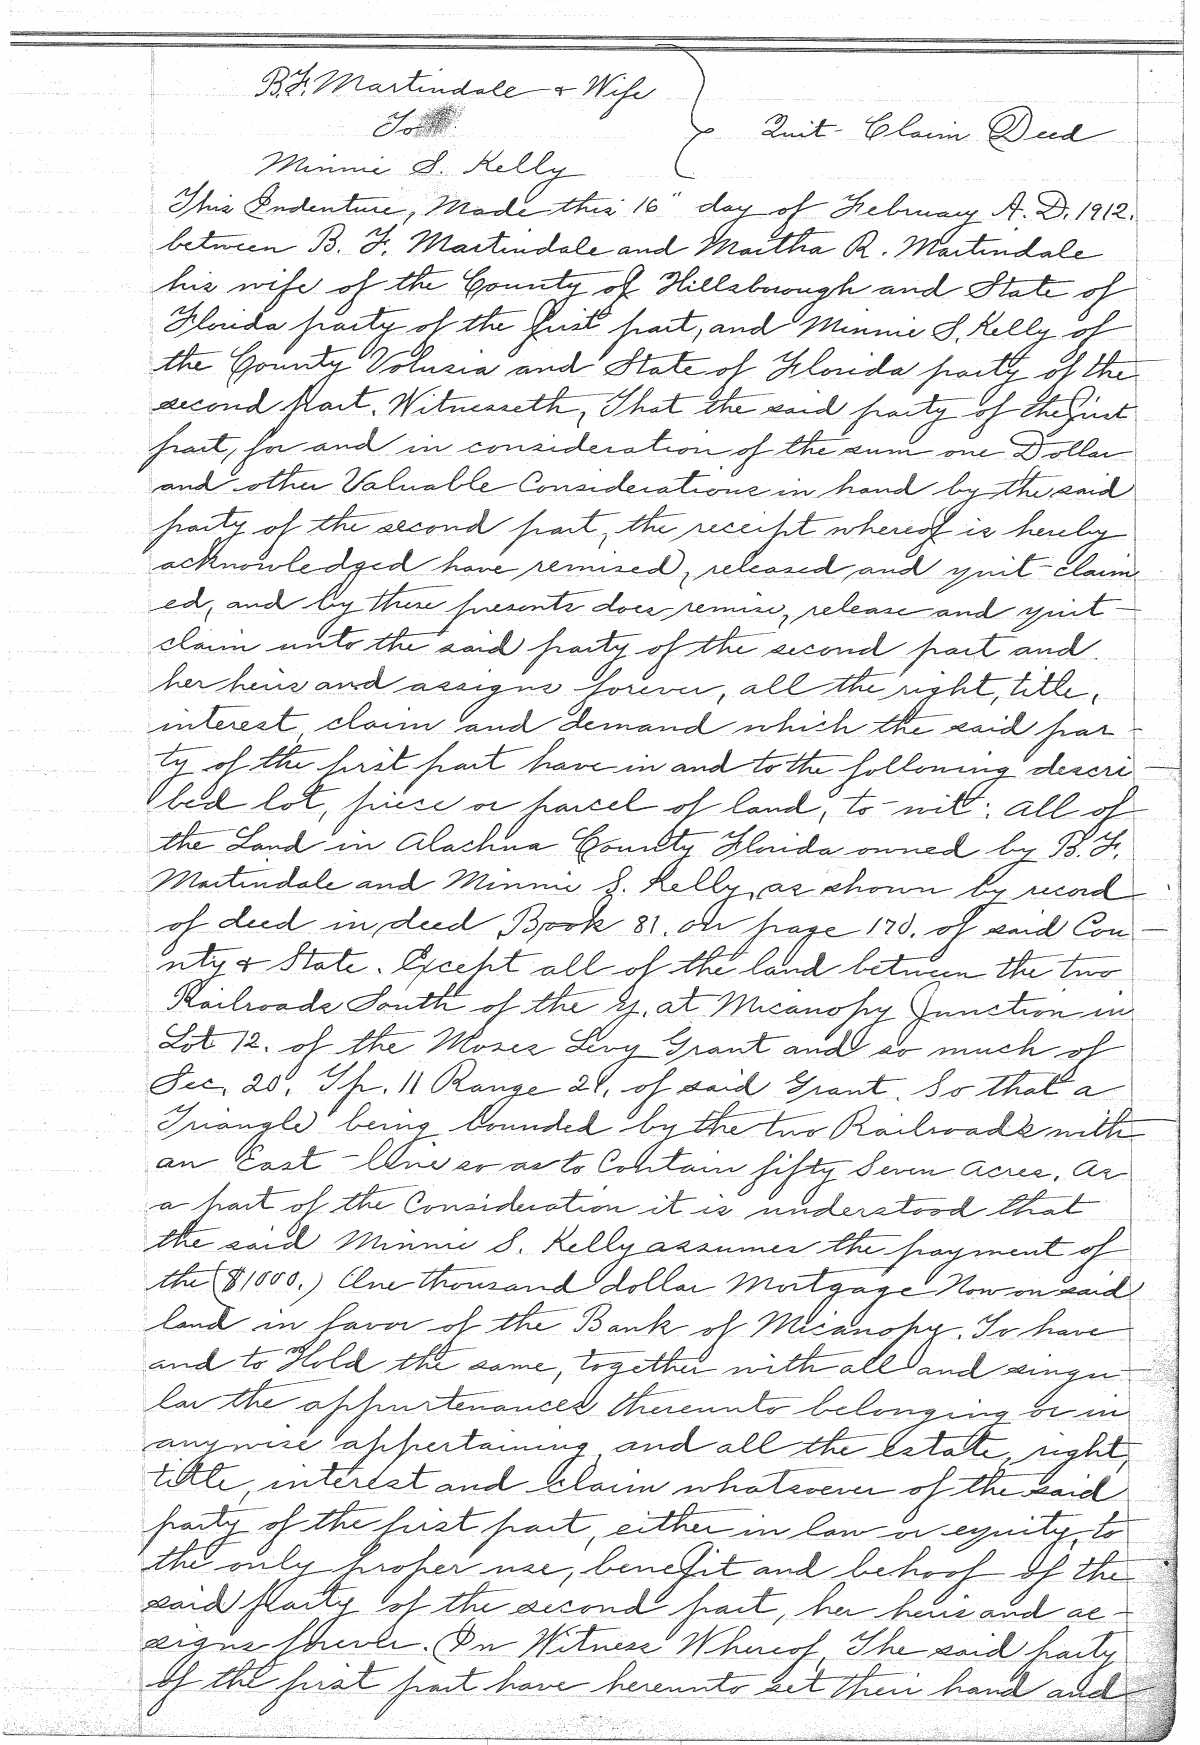 B.F. Martindale & Wife
To
Quit - Claim Deed
Minnie S. Kelly
This Indenture, Made this 16" day of February A. D. 1912.
between B. F. Martindale and Martha R. Martindale
his wife of the County of Hillsborough and State of
Florida party of the first part, and Minnie S. Kelly of
the County Volusia and State of Florida party of the
second part. Witnesseth, That the said party of the first
part, for and in consideration of the sum one Dollar
and other Valuable Considerations in hand by the said
party of the second part, the receipt whereof is hereby
acknowledged have remised, released and quit-claim
ed, and by these presents does remise, release and quit
claim unto the said party of the second part and
her heirs and assigns forever, all the right, title,
interest, claim and demand which the said par-
ty of the first part have in and to the following descri-
bed lot, piece or parcel of land, to-wit: all of
the Land in Alachua County Florida owned by B. F.
Martindale and Minnie S. Kelly, as shown by record
of deed in deed Book 81. on page 170. of said Cou-
nty & State. Except all of the land between the two
Railroads South of the Y. at Micanopy Junction in
Lot 12. of the Moses Levy Grant and so much of
Sec. 20. Tp. 11 Range 21. of said Grant. So that a
Triangle being bounded by the two Railroads with
an East-line so as to Contain fifty Seven Acres. As
a part of the Consideration it is understood that
the said Minnie S. Kelly assumes the payment of
the ($1000.) One thousand dollar Mortgage Now on said
land in favor of the Bank of Micanopy. To have
and to Hold the same, together with all and singu
lar the appurtenances thereunto belonging or in
anywise appertaining, and all the estate, right,
title, interest and claim whatsoever of the said
party of the first part, either in law or equity, to
the only proper use, benefit and behoof of the
said party of the second part, her heirs and as-
signs forever. In Witness Whereof, The said party
of the first part have hereunto set their hand and